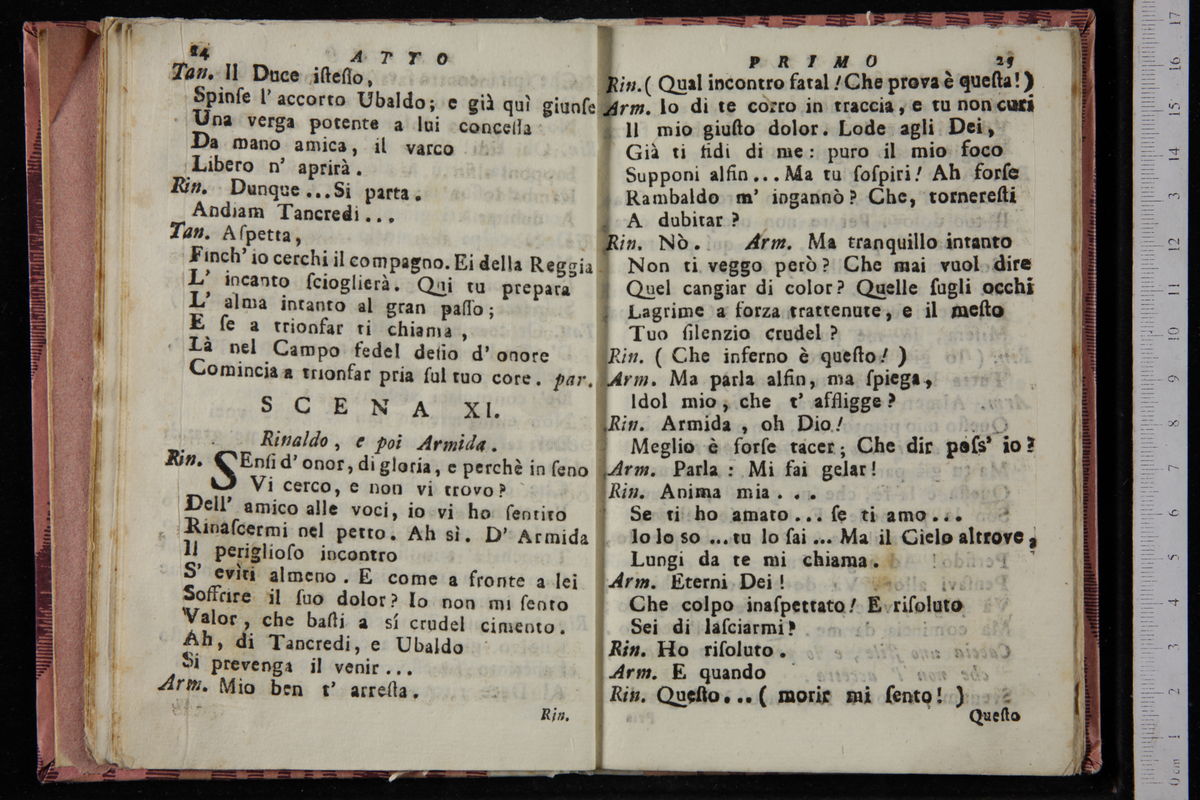 24 ATTO
Tan. Il Duce iſteſſo,
Spinſe l' accorto Ubaldo; e già quì giunſe
Una verga potente a lui conceſſa
Da mano amica, il varco
Libero n' aprirà.
Rin. Dunque ... Si parta.
Andiam Tancredi ...
Tan. Aſpetta,
Finch' io cerchi il compagno. Ei della Reggia
L' incanto ſcioglierà. Qui tu prepara
L' alma intanto al gran paſſo;
E ſe a trionfar ti chiama,
Là nel Campo fedel deſio d' onore
Comincia a trionfar pria ſul tuo core. par.
SCENA XI.
Rinaldo, e poi Armida.
Rin. SEnſi d' onor, di gloria, e perchè in ſeno
Vi cerco, e non vi trovo?
Dell' amico alle voci, io vi ho ſentito
Rinaſcermi nel petto. Ah sì. D' Armida
Il periglioſo incontro
S' eviti almeno. E come a fronte a lei
Soffrire il ſuo dolor? Io non mi ſento
Valor, che baſti a sí crudel cimento.
Ah, di Tancredi, e Ubaldo
Si prevenga il venir ...
Arm. Mio ben t' arreſta.
Rin.
PRIMO 25
Rin. ( Qual incontro fatal! Che prova è queſta! )
Arm. Io di te corro in traccia, e tu non curi
Il mio giuſto dolor. Lode agli Dei,
Già ti fidi di me: puro il mio foco
Supponi alfin ... Ma tu ſoſpiri! Ah forſe
Rambaldo m' ingannò? Che, tornereſti
A dubitar?
Rin. Nò. Arm. Ma tranquillo intanto
Non ti veggo però? Che mai vuol dire
Quel cangiar di color? Quelle ſugli occhi
Lagrime a forza trattenute, e il meſto
Tuo ſilenzio crudel?
Rin. ( Che inferno è queſto! )
Arm. Ma parla alfin, ma ſpiega,
Idol mio, che t' affligge?
Rin. Armida, oh Dio!
Meglio è forſe tacer; Che dir poſs' io?
Arm. Parla: Mi fai gelar!
Rin. Anima mia...
Se ti ho amato ... ſe ti amo ...
Io lo so ... tu lo ſai ... Ma il Cielo altrove,
Lungi da te mi chiama.
Arm. Eterni Dei!
Che colpo inaſpettato! E riſoluto
Sei di laſciarmi?
Rin. Ho riſoluto.
Arm. E quando
Rin. Queſto... ( morir mi ſento! )
Queſto